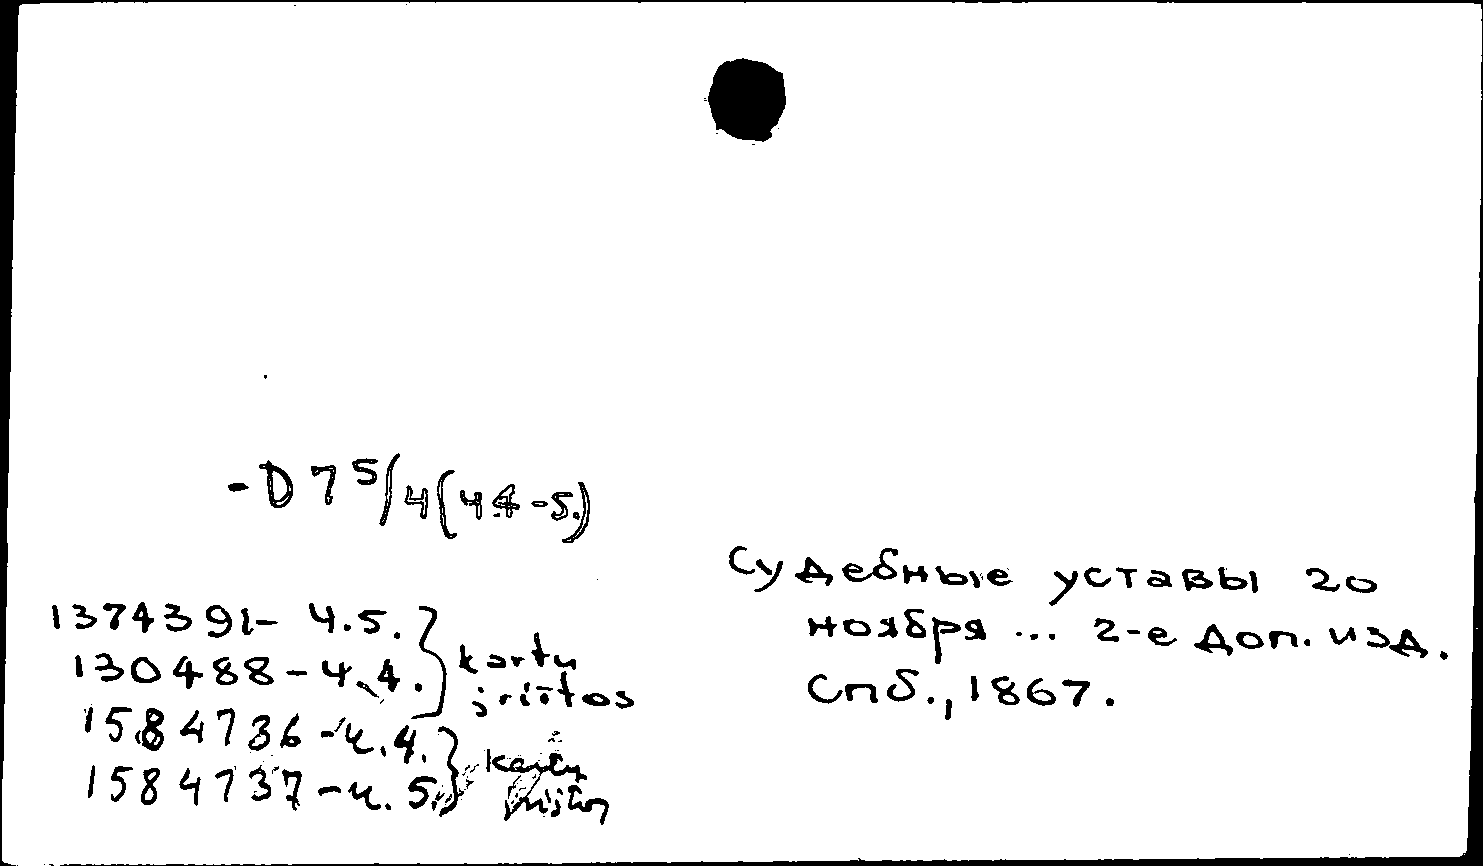 -D 7 5/4 (ч 4-5.)
Судебные уставы 20
ноября ... 2-е доп. изд.
Спб., 1867.
1374391- ч.5.
130488-ч.4.
kartu
įrištos
1584736-ч.4.
1584737-ч.5.
kartu